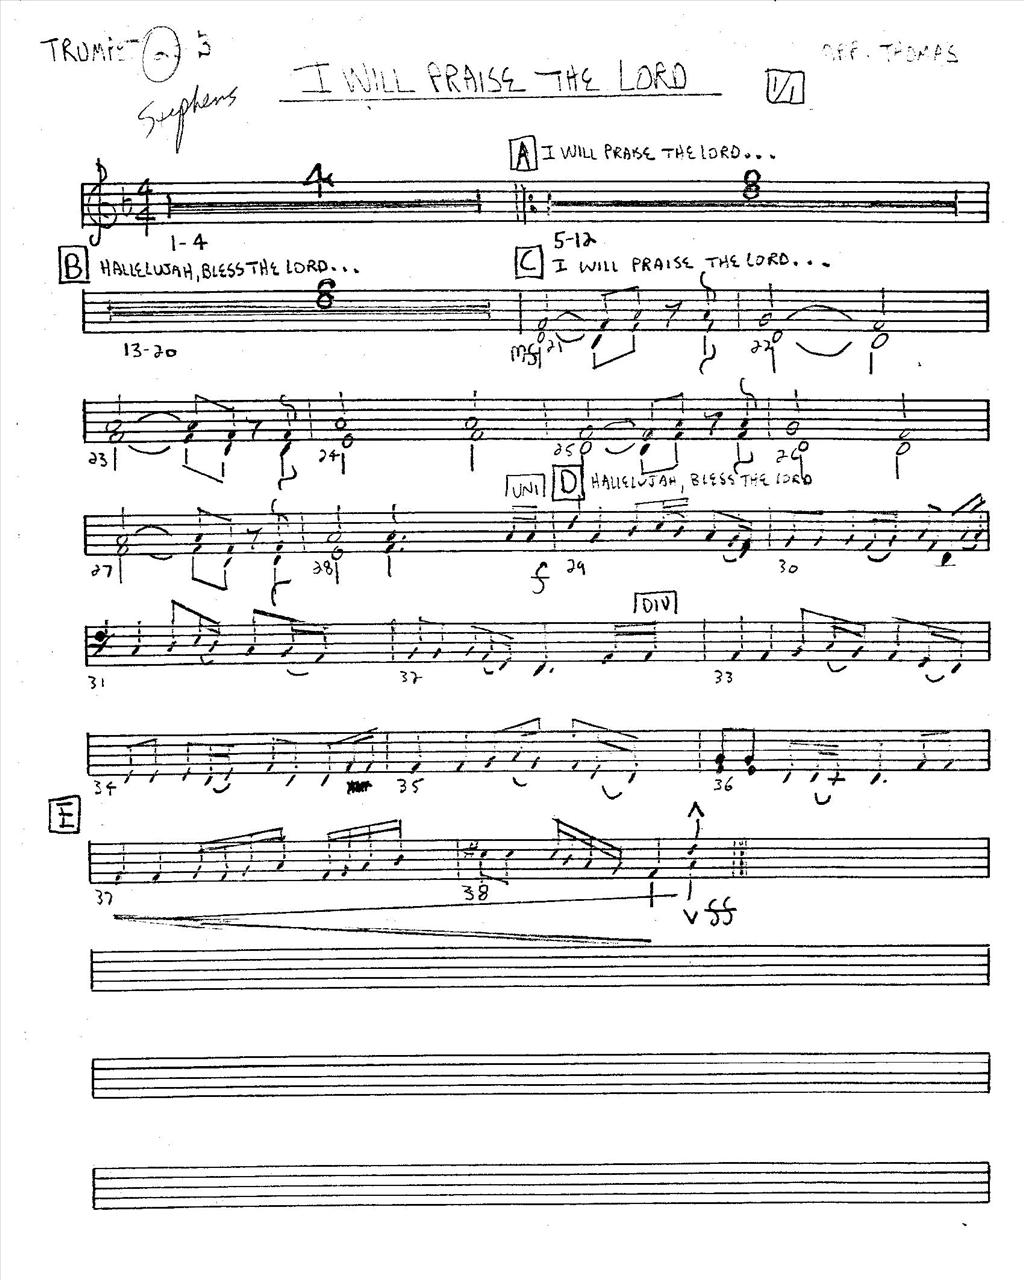 2 3
I WILL PRAISE THE LORD
1/1
ARR. THOMAS
Stephens
A I WILL PRAISE THE LORD...
4 4
4
8
1-4
5-12
B HALLELUJAH, BLESS THE LORD...
C I WILL PRAISE THE LORD...
8
13-20
mf 21
22
23
24
25
26
UNI
D HALLELUJAH, BLESS THE LORD
27
28
f
29
30
DIV
31
32
33
34
35
36
E
37
38
ff